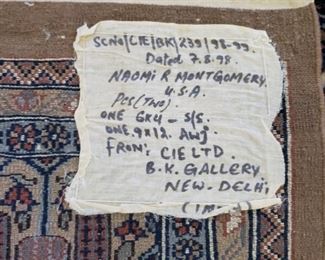 SCNO/CIE/BK/239/98-99.
Dated 7.8.98.
NAOMI R MONTGOMERY.
U.S.A.
PCS(TWO).
ONE 6X4 - S/S.
ONE.9X12. AWJ.
FROM: CIE LTD.
B.K. GALLERY
NEW-DELHI